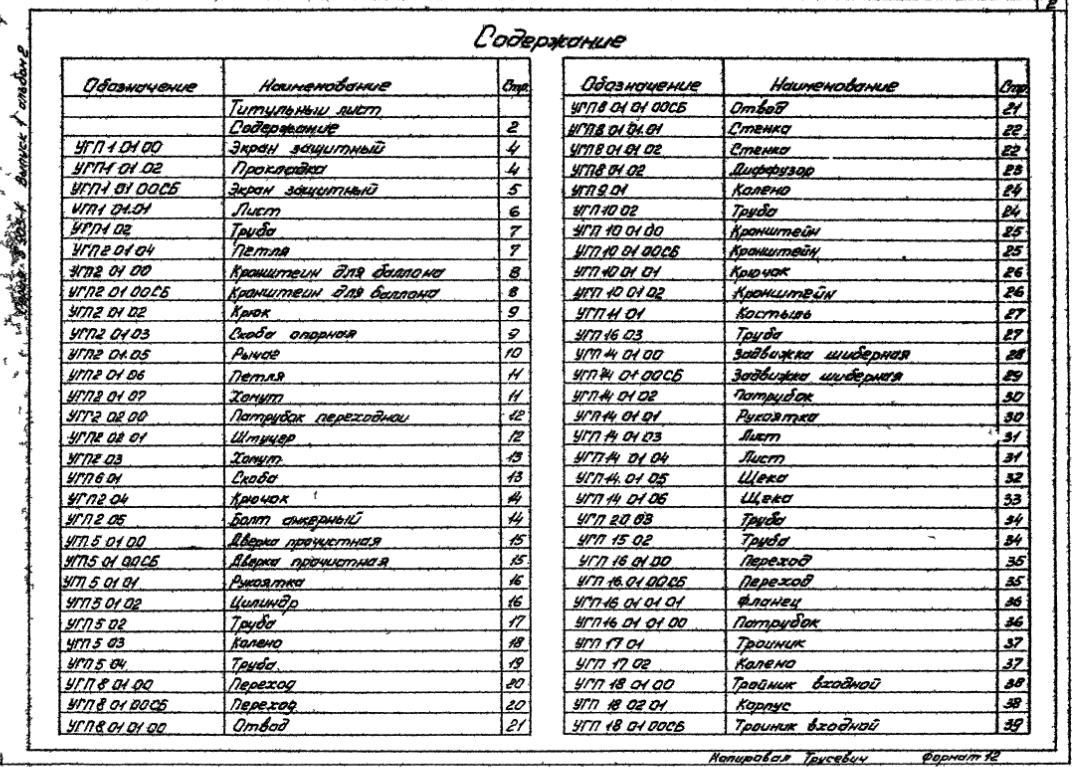 2
Содержание
Обозначение Наименование Стр.
Титульный лист
Содержание 2
УГП 1 01 00 Экран защитный 4
УГП1 01.02 Прокладка 4
УГП1 01 00СБ Экран защитный 5
УГП1 01.01 Лист 6
УГП1 02 Труба 7
УГП2 01 04 Петля 7
УГП2 01 00 Кронштейн для баллона 8
УГП2 01 00СБ Кронштейн для баллона 8
УГП2 01 02 Крюк 9
УГП2 01 03 Скоба опорная 9
УГП2 01.05 Рычаг 10
УГП2 01 06 Петля 11
УГП2 01 07 Хомут 11
УГП2 02 00 Патрубок переходной 12
УГП2 02 01 Штуцер 12
УГП2 03 Хомут 13
УГП6 01 Скоба 13
УГП2 04 Крючок 14
УГП2 05 Болт анкерный 14
УГП 5 01 00 Дверка прочистная 15
УГП5 01 00СБ Дверка прочистная 15
УГП 5 01 01 Рукоятка 16
УГП5 01 02 Цилиндр 16
УГП 5 02 Труба 17
УГП 5 03 Колено 18
УГП 5 04 Труба 19
УГП 8 01.00 Переход 20
УГП 8 01 00СБ Переход 20
УГП8.01 01 00 Отвод 21
Обозначение Наименование Стр.
УГП8 01 01 00СБ Отвод 21
УГП8 01 01.01 Стенка 22
УГП8 01 01 02 Стенка 22
УГП8 01 02 Диффузор 23
УГП 9.01 Колено 24
УГП 10 02 Труба 24
УГП 10 01 00 Кронштейн 25
УГП 10 01 00СБ Кронштейн 25
УГП 10 01 01 Крючок 26
УГП 10 01 02 Кронштейн 26
УГП 11 01 Костыль 27
УГП 16 03 Труба 27
УГП 14 01 00 Задвижка шиберная 28
УГП 14 01 00СБ Задвижка шиберная 29
УГП14 01 02 Патрубок 30
УГП14 01 01 Рукоятка 30
УГП 14 01 03 Лист 31
УГП 14 01 04 Лист 31
УГП 14. 01 05 Щека 32
УГП 14 01 06 Щека 33
УГП 20 03 Труба 34
УГП 15 02 Труба 34
УГП 16 01.00 Переход 35
УГП 16.01 00СБ Переход 35
УГП 16 01 01 01 Фланец 36
УГП 16 01 01 00 Патрубок 36
УГП 17 01 Тройник 37
УГП 17 02 Колено 37
УГП 18 01 00 Тройник входной 38
УГП 18 02 01 Корпус 38
УГП 18 01 00СБ Тройник входной 39
Копировал Трусевич Формат 12
Выпуск 1 альбом 2